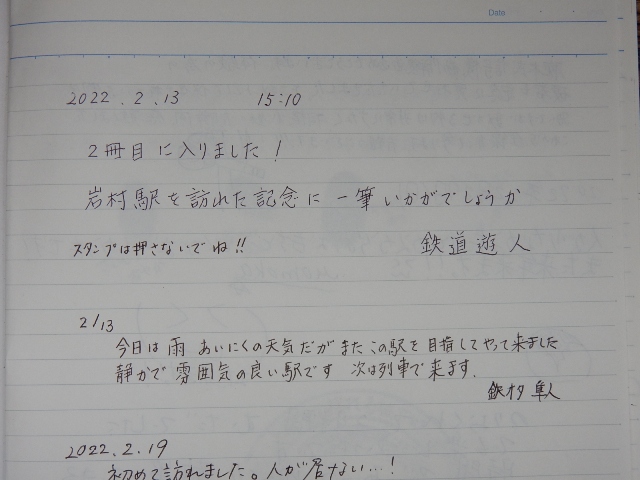 Date
2022.2.13 15:10
2冊目に入りました!
岩村駅を訪れた記念に一筆いかがでしょうか
スタンプは押さないでね!! 鉄道遊人
2/13
今日は雨 あいにくの天気だがまたこの駅を目指してやって来ました
静かで雰囲気の良い駅です 次は列車で来ます.
隼人
2022.2.19
初めて訪れました。人が居ない…!